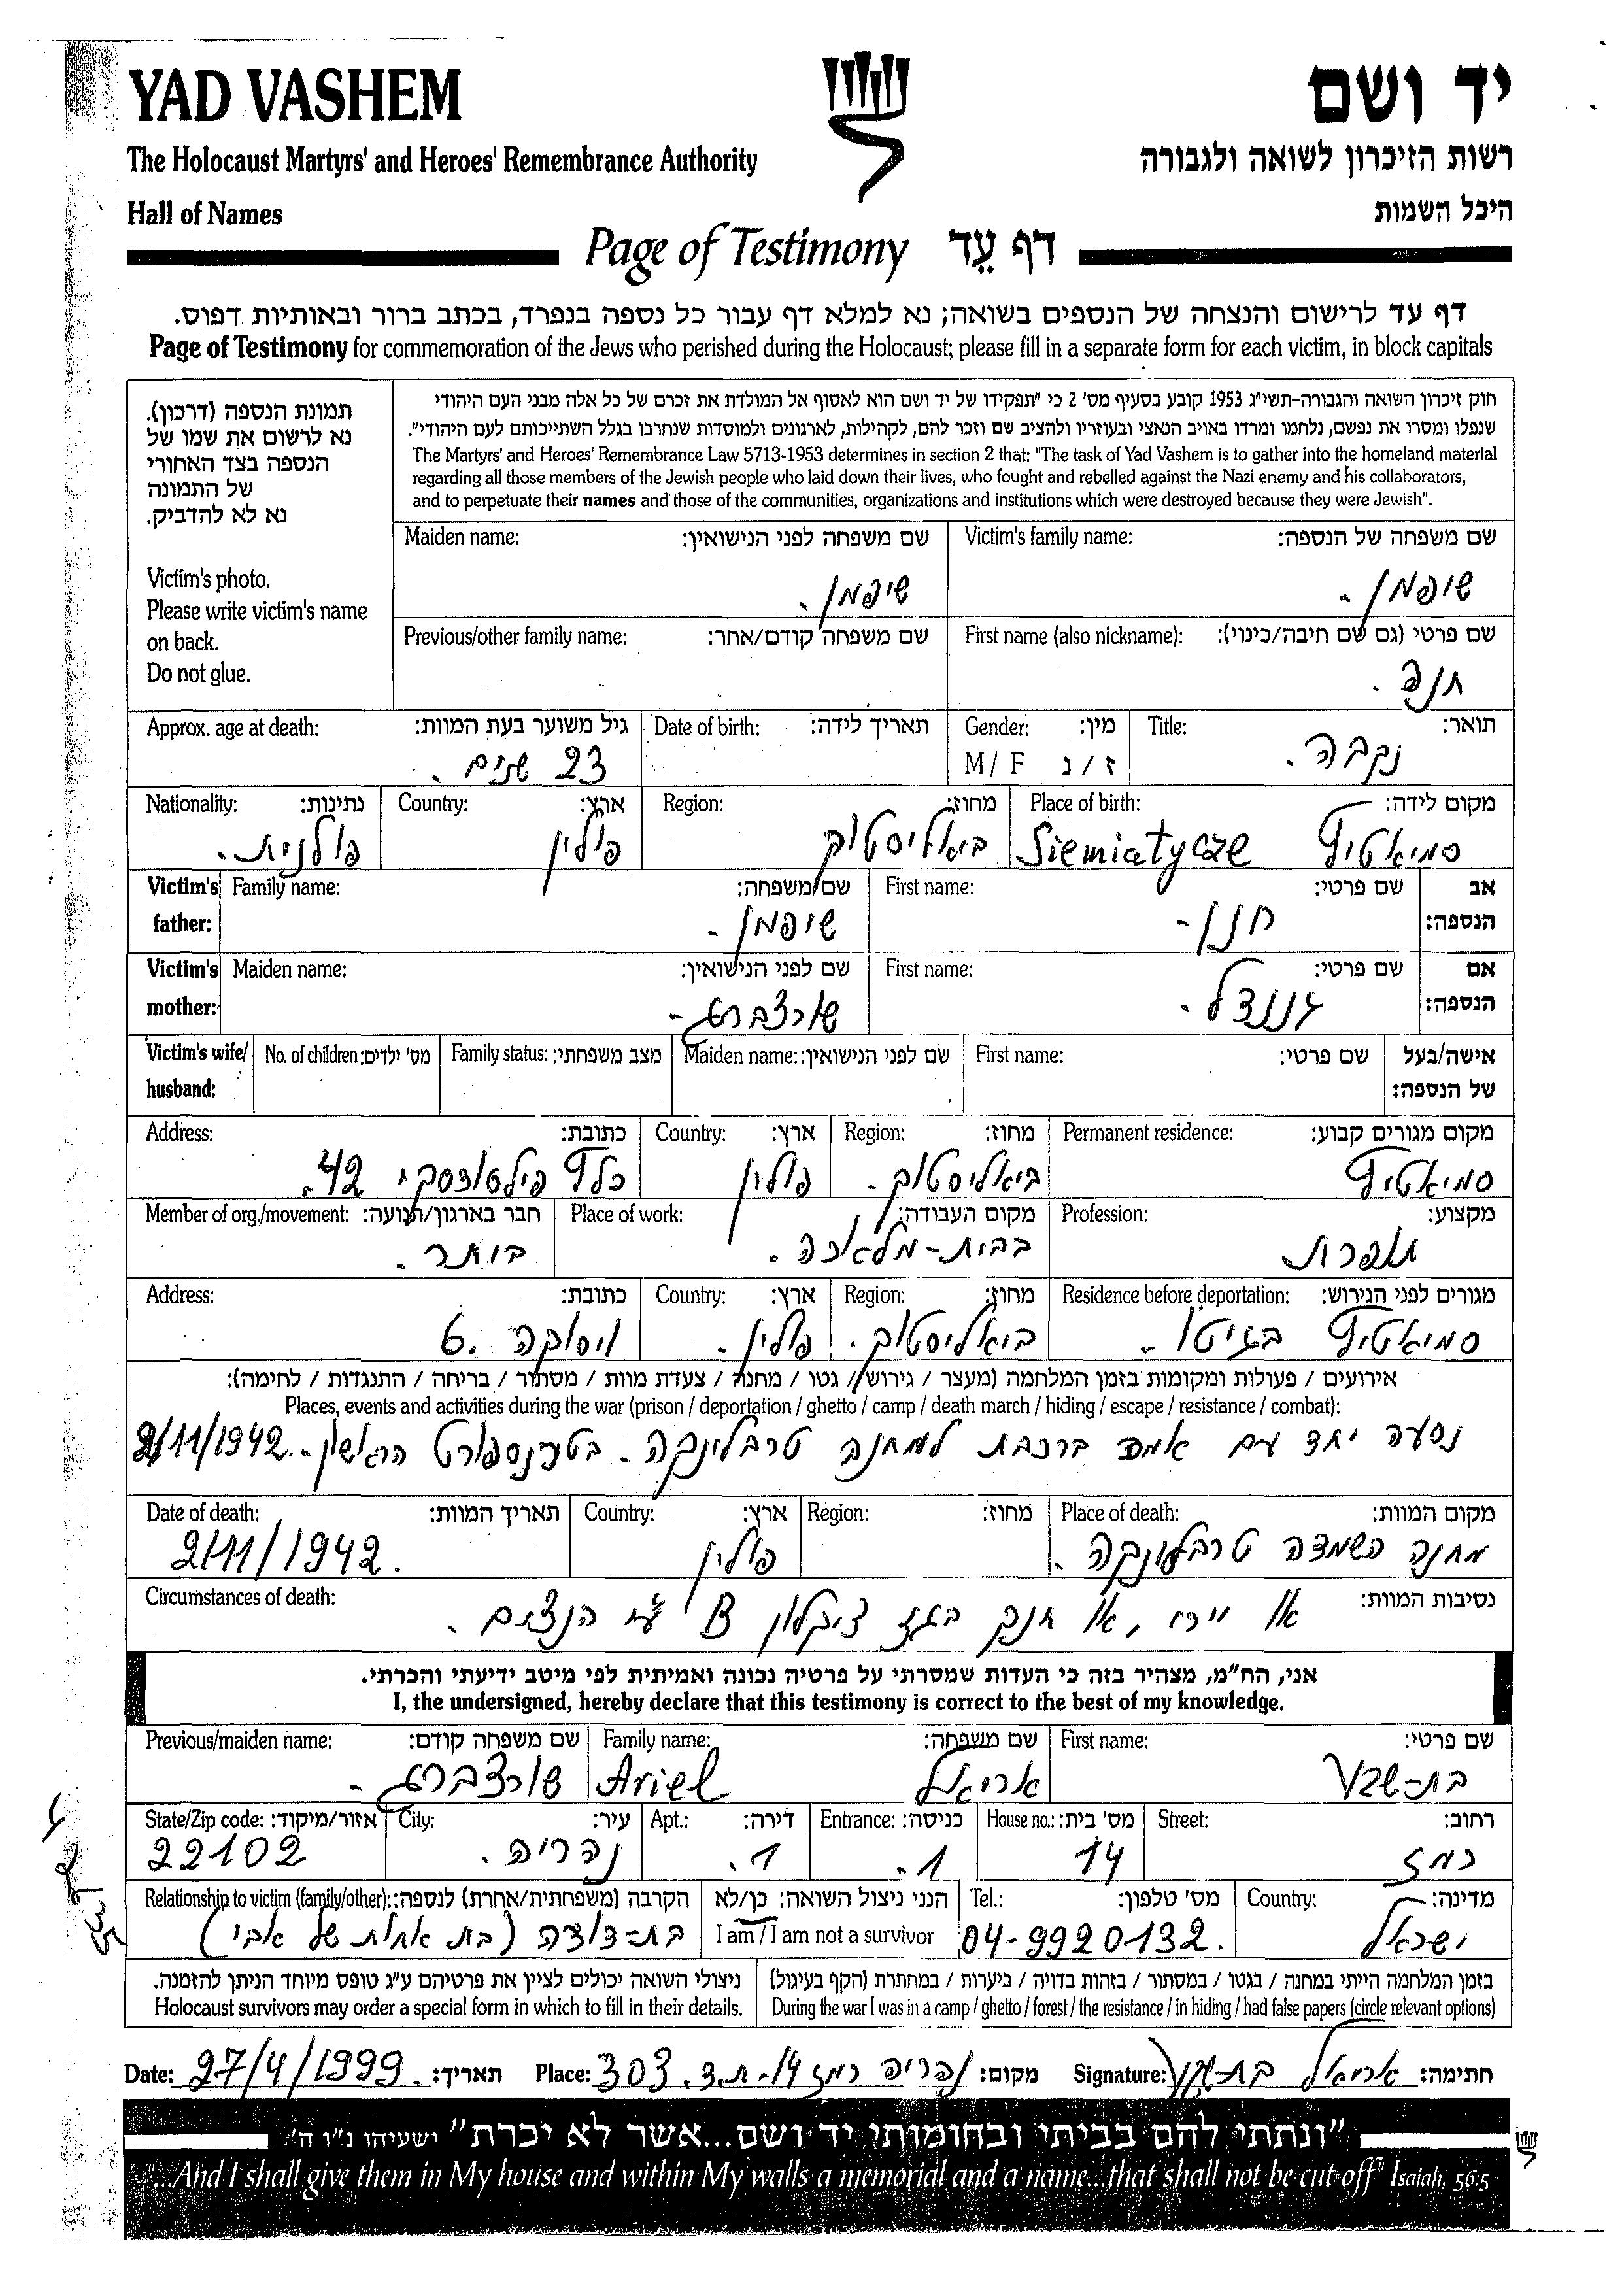 YAD VASHEM
יד ושם
The Holocaust Martyrs' and Heroes' Remembrance Authority
רשות הזיכרון לשואה ולגבורה
Hall of Names
היכל השמות
Page of Testimony דף עֵד
דף עד לרישום והנצחה של הנספים בשואה; נא למלא דף עבור כל נספה בנפרד, בכתב ברור ובאותיות דפוס.
Page of Testimony for commemoration of the Jews who perished during the Holocaust; please fill in a separate form for each victim, in block capitals
תמונת הנספה (דרכון).
נא לרשום את שמו של
הנספה בצד האחורי
של התמונה
נא לא להדביק.
Victim's photo.
Please write victim's name
on back.
Do not glue.
חוק זיכרון השואה והגבורה-תשי"ג 1953 קובע בסעיף מס' 2 כי "תפקידו של יד ושם הוא לאסוף אל המולדת את זכרם של כל אלה מבני העם היהודי
שנפלו ומסרו את נפשם, נלחמו ומרדו באויב הנאצי ובעוזריו ולהציב שם וזכר להם, לקהילות, לארגונים ולמוסדות שנחרבו בגלל השתייכותם לעם היהודי".
The Martyrs' and Heroes' Remembrance Law 5713-1953 determines in section 2 that: "The task of Yad Vashem is to gather into the homeland material
regarding all those members of the Jewish people who laid down their lives, who fought and rebelled against the Nazi enemy and his collaborators,
and to perpetuate their names and those of the communities, organizations and institutions which were destroyed because they were Jewish".
Victim's family name: שם משפחה של הנספה:
שיפמן.
Maiden name: שם משפחה לפני הנישואין:
שיפמן.
First name (also nickname): שם פרטי (גם שם חיבה/כינוי):
חנה.
Previous/other family name: שם משפחה קודם/אחר:
Title: תואר:
נקבה.
Gender: מין:
M / F ז / נ
Date of birth: תאריך לידה:
Approx. age at death: גיל משוער בעת המוות:
23 שנים.
Place of birth: מקום לידה:
סמיאטיץ Siemiatycze
Region: מחוז:
ביאליסטוק
Country: ארץ:
פולין
Nationality: נתינות:
פולנית.
Victim's father: אב הנספה:
First name: שם פרטי:
חנן-
Family name: שם משפחה:
שיפמן-
Victim's mother: אם הנספה:
First name: שם פרטי:
Maiden name: שם לפני הנישואין:
שורצברג-
Victim's wife/ husband: אישה/בעל של הנספה:
First name: שם פרטי:
Maiden name: שם לפני הנישואין:
Family status: מצב משפחתי:
No. of children: מס' ילדים:
Permanent residence: מקום מגורים קבוע:
סמיאטיץ
Region: מחוז:
ביאליסטוק.
Country: ארץ:
פולין
Address: כתובת:
פילסודסקי 42.
Profession: מקצוע:
תופרת
Place of work: מקום העבודה:
בבית-מלאכה.
Member of org./movement: חבר בארגון/תנועה:
Residence before deportation: מגורים לפני הגירוש:
סמיאטיץ בגיטו-
Region: מחוז:
ביאליסטוק.
Country: ארץ:
פולין-
Address: כתובת:
ויסוקה 6.
אירועים / פעולות ומקומות בזמן המלחמה (מעצר / גירוש / גטו / מחנה / צעדת מוות / מסתור / בריחה / התנגדות / לחימה):
Places, events and activities during the war (prison / deportation / ghetto / camp / death march / hiding / escape / resistance / combat):
נסעה יחד עם אמה ברכבת למחנה טרבלינקה- בטרנספורט הראשון-2/11/1942
Place of death: מקום המוות:
מחנה השמדה טרבלינקה.
Region: מחוז:
Country: ארץ:
פולין
Date of death: תאריך המוות:
2/11/1942.
Circumstances of death: נסיבות המוות:
או יירו, או חנק בגז ציקלון B ע"י הנצים.
אני, הח"מ, מצהיר בזה כי העדות שמסרתי על פרטיה נכונה ואמיתית לפי מיטב ידיעתי והכרתי.
I, the undersigned, hereby declare that this testimony is correct to the best of my knowledge.
First name: שם פרטי:
בת-שבע
Family name: שם משפחה:
אריאל Ariel
Previous/maiden name: שם משפחה קודם:
שורצברג-
Street: רחוב:
רמז
House no.: מס' בית:
14
Entrance: כניסה:
1.
Apt.: דירה:
1.
City: עיר:
נהריה.
State/Zip code: אזור/מיקוד:
22102
Country: מדינה:
ישראל
Tel.: מס' טלפון:
04-9920132.
הנני ניצול השואה: כן/לא
I am / I am not a survivor
Relationship to victim (family/other): הקרבה (משפחתית/אחרת) לנספה:
בת-דודה (בת אחות של אבי)
בזמן המלחמה הייתי במחנה / בגטו / במסתור / בזהות בדויה / ביערות / במחתרת (הקף בעיגול)
During the war I was in a camp / ghetto / forest / the resistance / in hiding / had false papers (circle relevant options)
ניצולי השואה יכולים לציין את פרטיהם ע"ג טופס מיוחד הניתן להזמנה.
Holocaust survivors may order a special form in which to fill in their details.
Date: 27/4/1999. תאריך: Place: נהריה רמז 14-ת.ד. 303 מקום: Signature: אריאל בת-שבע חתימה:
"ונתתי להם בביתי ובחומותי יד ושם...אשר לא יכרת" ישעיהו נ"ו ה'
"...And I shall give them in My house and within My walls a memorial and a name...that shall not be cut off" Isaiah, 56:5